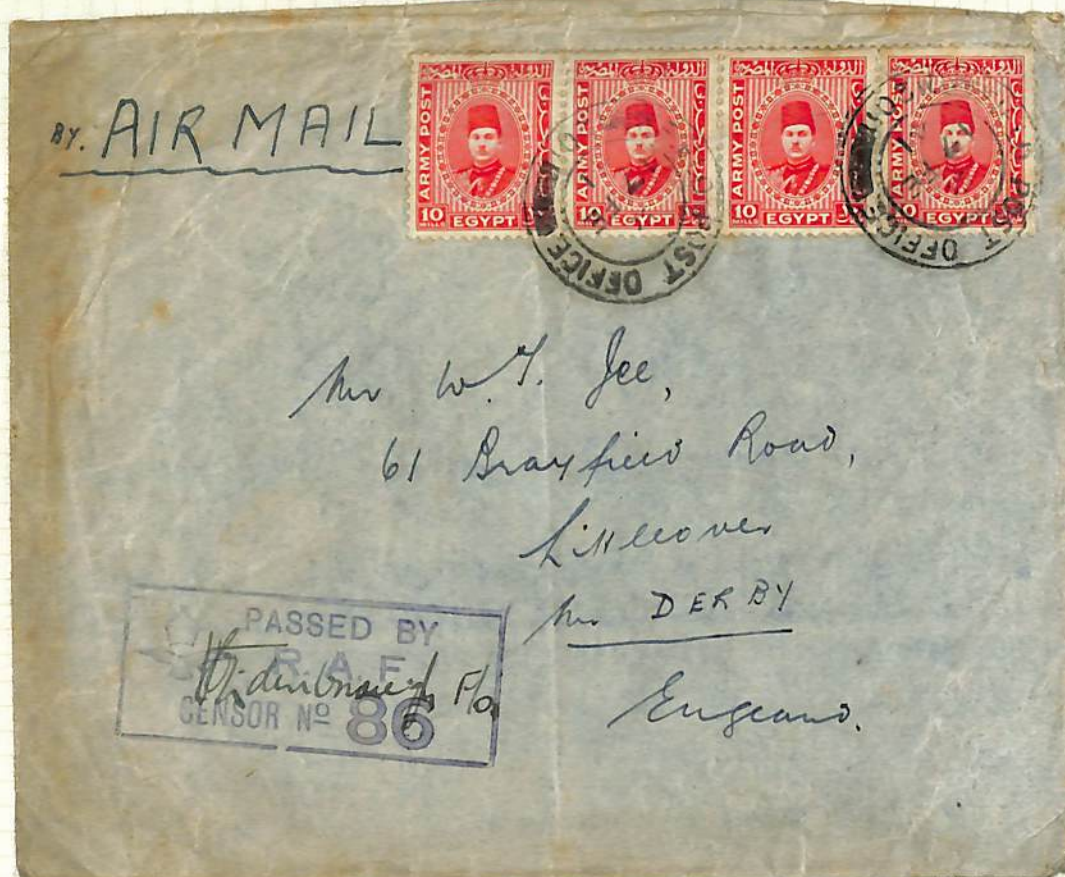 BY. AIR MAIL
ARMY POST
10
MILLS
EGYPT
ARMY POST
EGYPT
ARMY POST
10
MILLS
EGYPT
ARMY POST
EGYPT
POST OFFICE
POST OFFICE
Mr W.T. Jee,
61 Brayfield Road,
Littleover
Nr DERBY
England.
PASSED BY
R.A.F.
CENSOR Nº 86
F/O